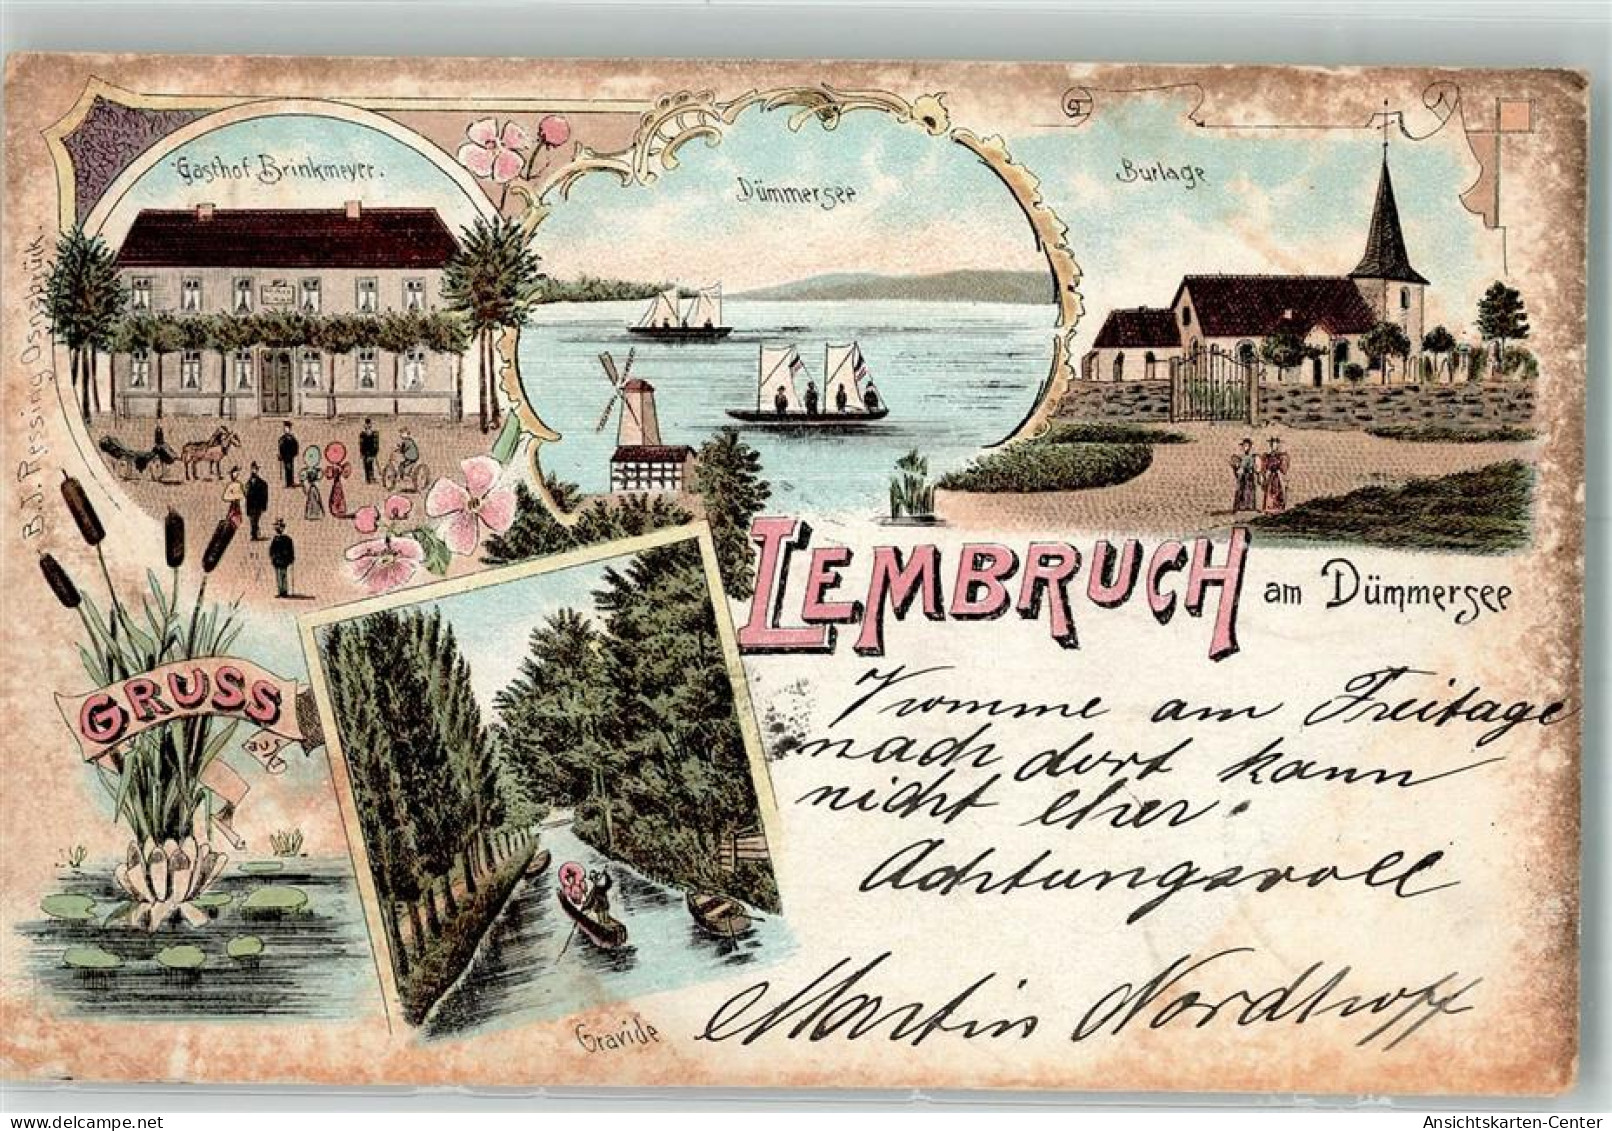 Gasthof Brinkmeyer.
Dümmersee
Burlage
B. J. Pessing, Osnabrük.
LEMBRUCH am Dümmersee
GRUSS
aus
Komme am Freitage
nach dort kann
nicht eher.
Achtungsvoll
Martin Nordhoff
Gravide
Ansichtskarten-Center